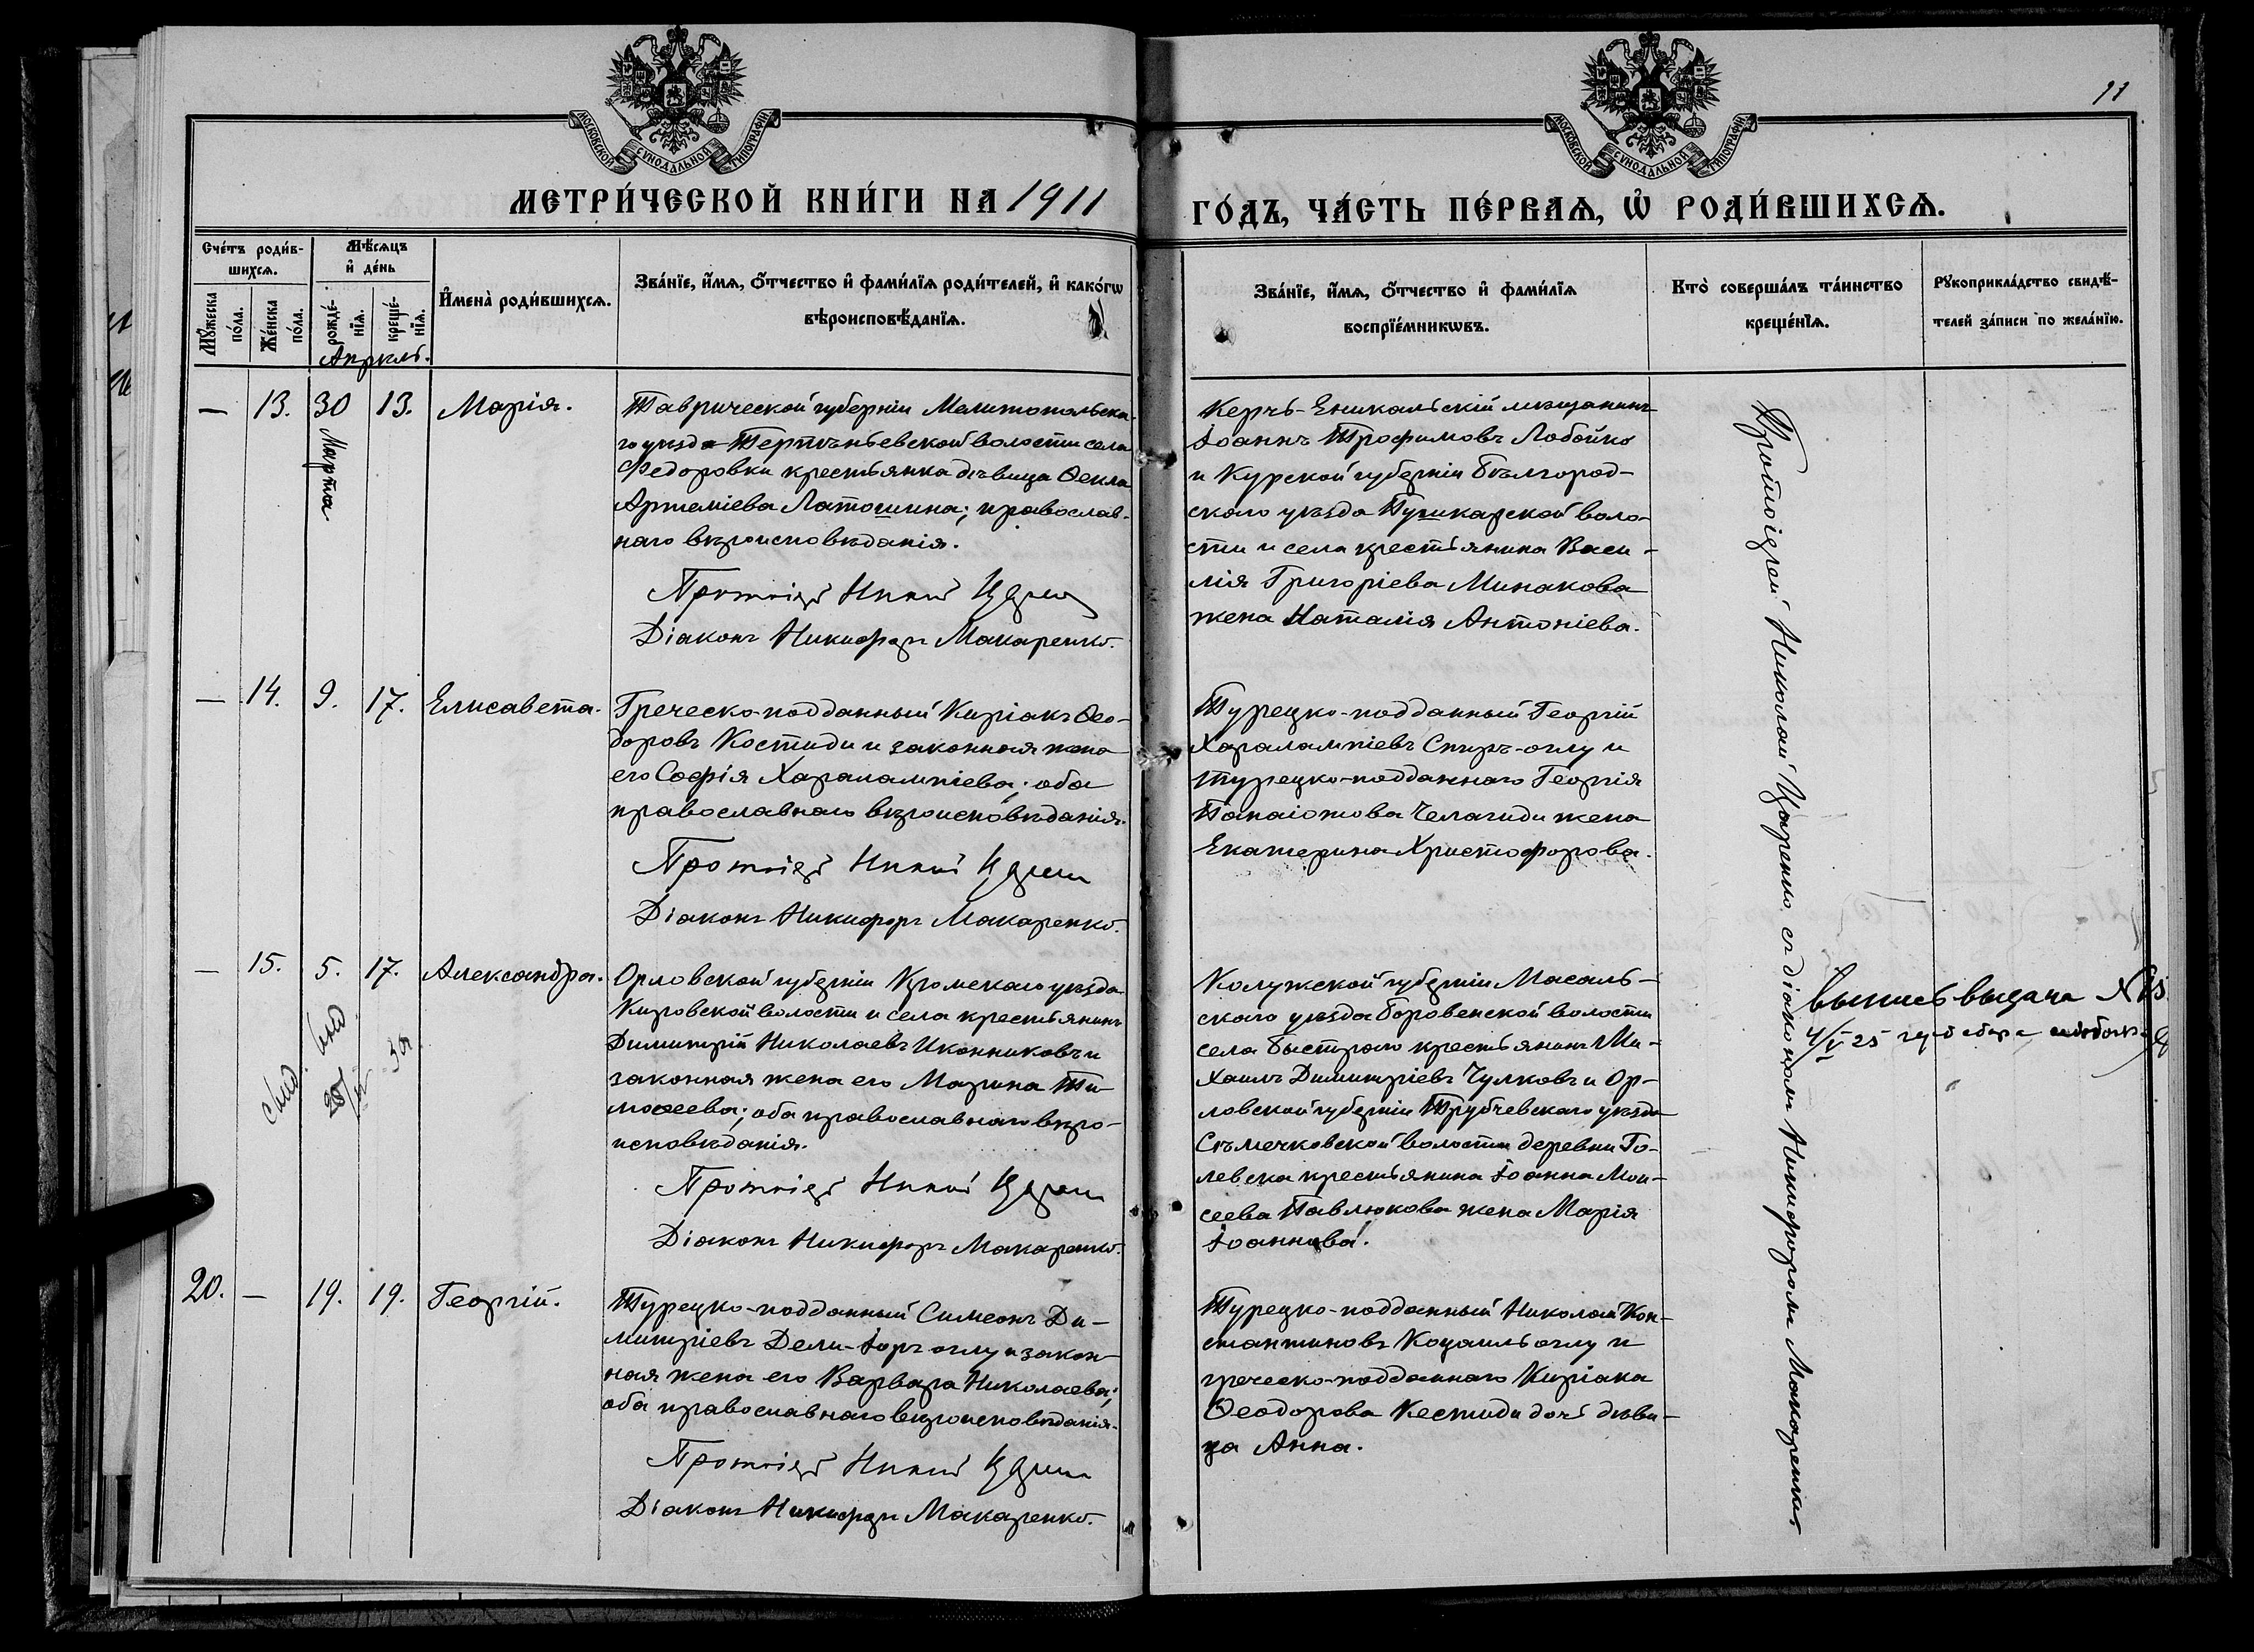 11
МОСКОВСКОЙ СУНОДАЛЬНОЙ ТИПОГРАФІИ
МОСКОВСКОЙ СУНОДАЛЬНОЙ ТИПОГРАФІИ
МЕТРИ́ЧЕСКОЙ КНИ́ГИ НА 1911
ГО́ДЪ, ЧА́СТЬ ПЕ́РВАѦ, Ѡ҆ РОДИ́ВШИХСѦ.
Сче́тъ роди́в-
шихсѧ.
Мꙋ́жеска
по́ла.
Же́нска
по́ла.
Мѣ́сѧцъ
и҆ де́нь
рожде́-
нїѧ.
креще́-
нїѧ.
Апрѣль.
И҆мена̀ роди́вшихсѧ.
Зва́нїе, и҆́мѧ, о҆́тчество и҆ фами́лїѧ роди́телей, и҆ како́гѡ
вѣроисповѣ́данїѧ.
Зва́нїе, и҆́мѧ, о҆́тчество и҆ фами́лїѧ
воспрїе́мникѡвъ.
Кто̀ соверша́лъ та́инство
креще́нїѧ.
Рꙋкоприкла́дство свидѣ́-
телей за́писи по жела́нїю.
— 13. 30 13. Марія.
Марта
Таврической губерніи Мелитопольска-
го уѣзда Терпѣньевской волости села
Федоровки крестьянка дѣвица Ѳекла
Артеміева Латошина; православ-
наго вѣроисповѣданія.
Протоіерей Николай Царенко
Діаконъ Никифоръ Макаренко.
Керчь-Еникальскій мѣщанинъ
Іоаннъ Трофимовъ Лобойко
и Курской губерніи Бѣлгород-
скаго уѣзда Пушкарской воло-
сти и села крестьянина Васи-
лія Григоріева Минакова
жена Наталія Антоніева.
Протоіерей Николай Царенко съ діакономъ Никифоромъ Макаренко
— 14. 9. 17. Елисавета.
Греческо-подданный Киріакъ Ѳео-
доровъ Костиди и законная жена
его Софія Харалампіева; оба
православнаго вѣроисповѣданія.
Протоіерей Николай Царенко
Діаконъ Никифоръ Макаренко.
Турецко-подданный Георгій
Харалампіевъ Спиръ-оглу и
турецко-подданнаго Георгія
Панаіотова Челагиди жена
Екатерина Христофорова.
— 15. 5. 17. Александра.
Орловской губерніи Кромскаго уѣзда
Кировской волости и села крестьянинъ
Димитрій Николаевъ Иконниковъ и
законная жена его Марина Ти-
моѳеева; оба православнаго вѣро-
исповѣданія.
Протоіерей Николай Царенко
Діаконъ Никифоръ Макаренко.
Калужской губерніи Масаль-
скаго уѣзда Боровенской волости
села Быстраго крестьянинъ Ми-
хаилъ Димитріевъ Чулковъ и Ор-
ловской губерніи Трубчевскаго уѣзда
Сѣмечковской волости деревни Го-
левска крестьянина Іоанна Мои-
сеева Павлюкова жена Марія
Іоаннова.
выпись выдача №
4/V 25
20. — 19. 19. Георгій.
Турецко-подданный Симеонъ Ди-
митріевъ Дели-Іоръ оглу и закон-
ная жена его Варвара Николаева;
оба православнаго вѣроисповѣданія.
Протоіерей Николай Царенко
Діаконъ Никифоръ Макаренко.
Турецко-подданный Николай Кон-
стантиновъ Коцаиль оглу и
греческо-подданнаго Киріака
Ѳеодорова Кестиди дочь дѣви-
ца Анна.